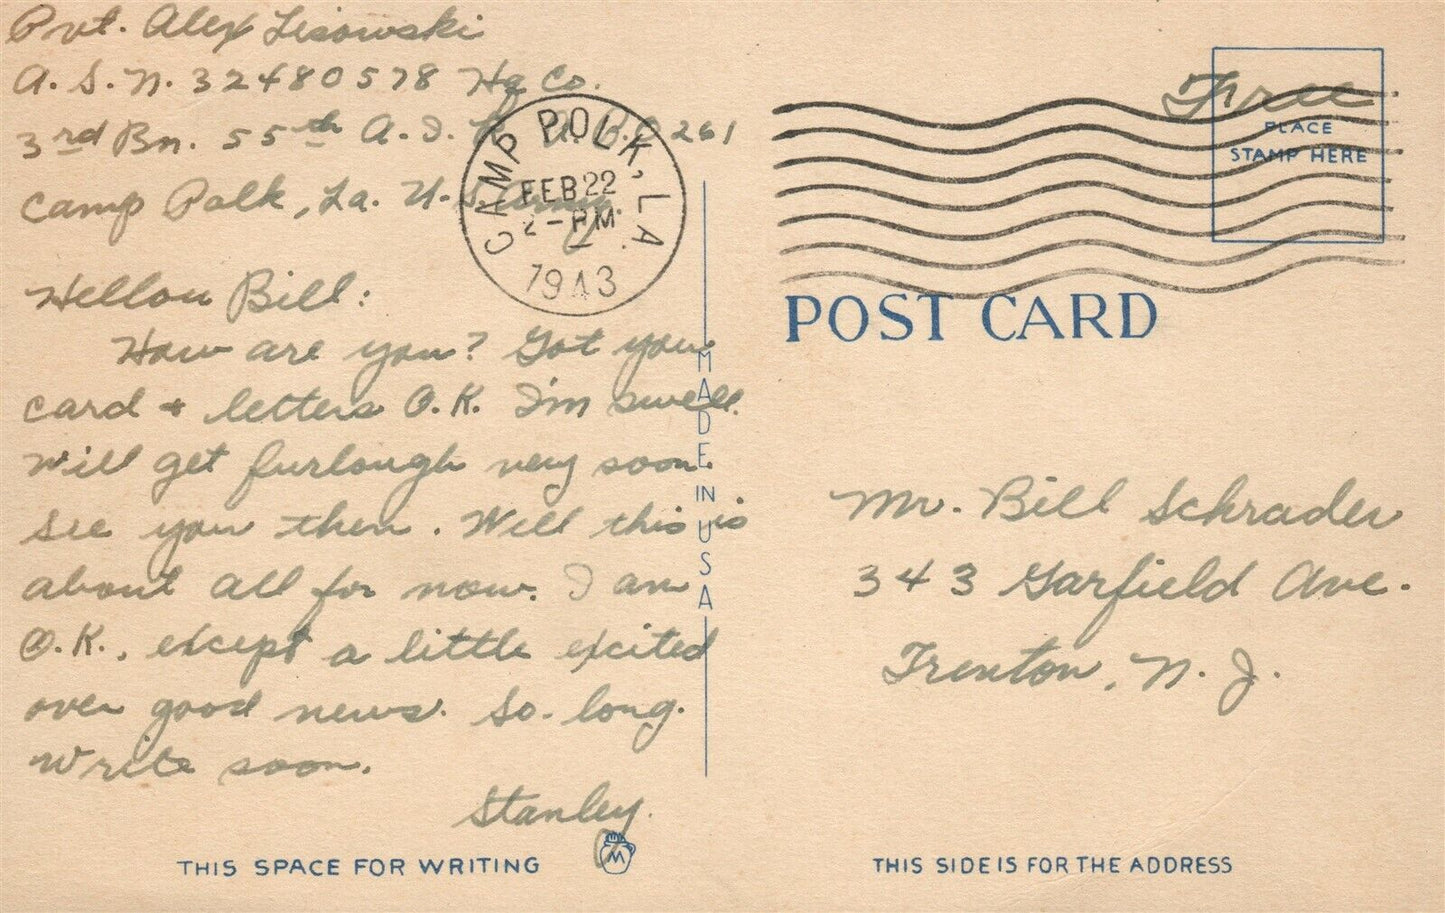 Pvt. Alex Lisowski
A.S.N. 32480578 Hq Co.
3rd Bn. 55th A.I. B. 261
Camp Polk, La. U.S. Army
CAMP POLK, LA.
FEB 22
2-PM
1943
Free
PLACE
STAMP HERE
POST CARD
Hellow Bill:
How are you? Got your
card + letters O.K. I'm swell.
Will get furlough very soon.
See you then. Well this is
about all for now. I am
O.K., except a little excited
over good news. So-long.
Write soon.
Stanley.
MADE IN USA
Mr. Bill Schrader
343 Garfield Ave.
Trenton, N.J.
THIS SPACE FOR WRITING
M
THIS SIDE IS FOR THE ADDRESS